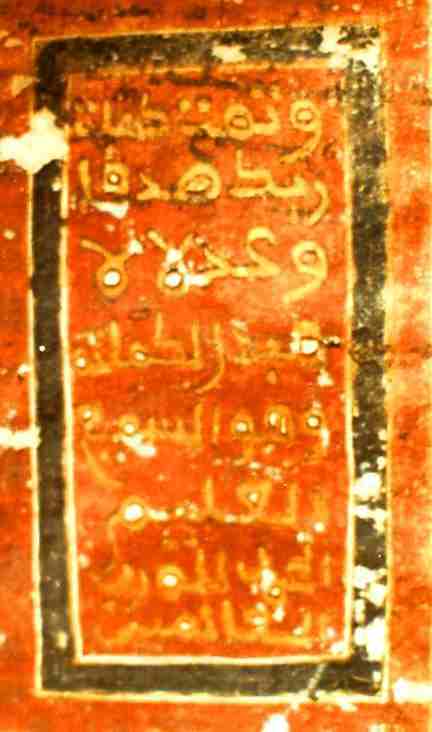 وتمت كلمت
ربك صدقا
وعدلا لا
مبدل لكلمته
وهو السميع
العليم